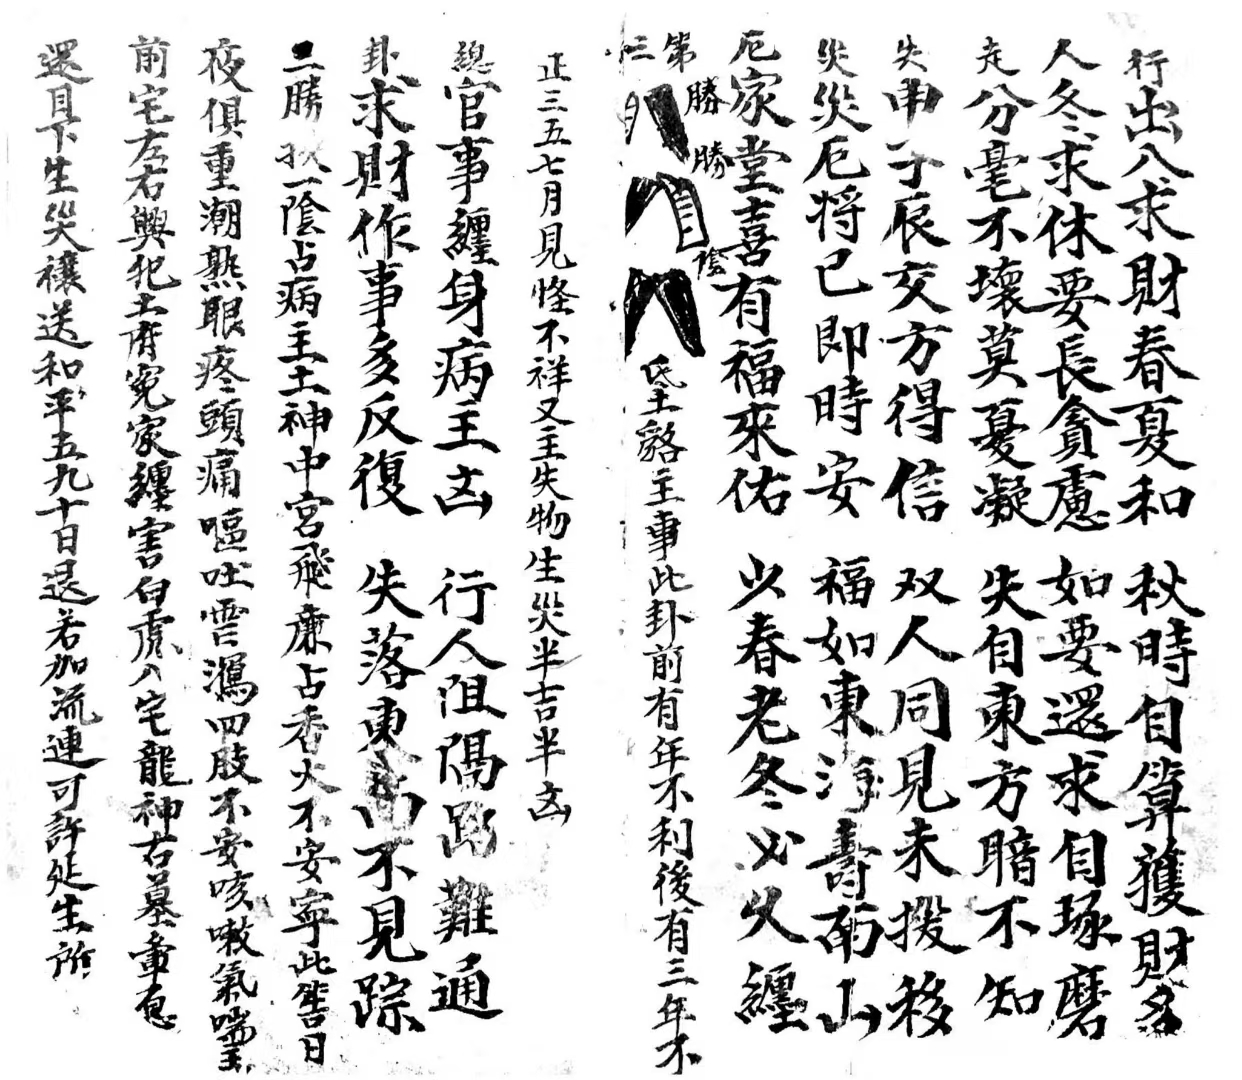 行出入求財春夏和 秋時自算獲財多
人冬求休要長貪慮 如要還求自琢磨
走分毫不壞莫憂凝 失自東方暗不知
失申子辰交方得信 双人同見未搬移
災災厄将已即時安 福如東海壽南山
厄家堂喜有福來佑 少春老冬必火纏
第三
勝
勝
陰
氏王豁主事此卦前有年不利後有三年不
正三五七月見怪不祥又主失物生災半吉半凶
總官事纏身病主凶 行人阻隔路難通
卦求財作事多反復 失落東不見踪
二勝一陰占病主土神中宮飛廉占香火不安寧此日
夜俱重潮熱眼疼頭痛嘔吐雪瀉四肢不安咳嗽氣喘主
前宅左右興犯土府冤家纏害白虎入宅龍神右墓重息
還目下生災禳送和平五九十日退若加流連可許延生所